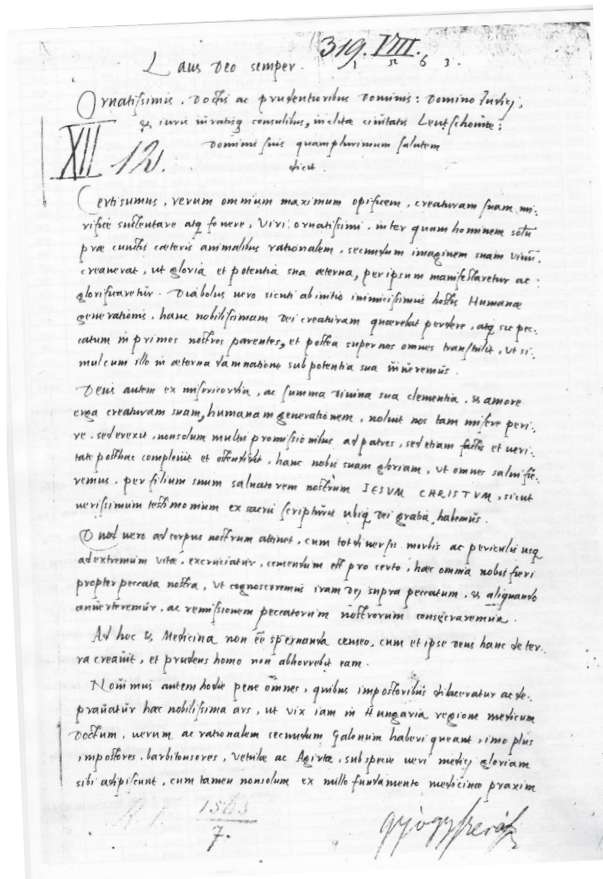 319. VIII.
Laus Deo semper. 1 5 6 3.
Ornatissimis, Doctis ac prudentioribus Dominis: Domino Iudici,
& iuris iuratisq consulibus, inclitæ civitatis Leutschoviæ:
XII 12. Dominis suis quamplurimum salutem
dicit.
Certissimus, verum omnium maximum opificem, creaturam suam mi-
rifice sustentare atq fovere, Viri ornatissimi, inter quam hominem solū
præ cunctis cæteris animalibus rationalem, secundum imaginem suam
creaverat, ut gloria et potentia sua æterna, per ipsum manifestaretur ac
glorificaretur. Diabolus vero sicuti ab initio inimicissimus hostis Humanæ
generationis, hanc nobilissimam Dei creaturam quærebat perdere, atq sic pec-
catum in primos nostros parentes, et postea super nos omnes transtulit, ut si-
mul cum illo in æterna damnatione sub potentia sua
Deus autem ex misericordia, ac summa divina sua clementia, & amore
erga creaturam suam, humanam generationem, noluit nos tam misere peri-
re. sed erexit, non solum multis promissionibus ad patres, sed etiam factis et veri-
tate posthac complevit et ostendidit, hanc nobis suam gloriam, ut omnes salvi fie-
remus. per filium suum salvatorem nostrum IESUM CHRISTUM, sicut
verissimum testimonium ex sacris scripturis ubiq Dei gratia habemus.
Quod vero ad corpus nostrum attinet, cum tot diversis morbis ac periculis usq
ad extremum vitæ, excruciatur, censendum est pro certo, hæc omnia nobis fieri
propter peccata nostra, ut cognosceremus iram Dei supra peccatum, & aliquando
converteremur, ac remissionem peccatorum nostrorum consequaremur.
Ad hoc & Medicina non ēē spernanda censeo, cum et ipse Deus hanc de ter-
ra creavit, et prudens homo non abhorrebit eam.
Novimus autem hodie pene omnes, quibus impostoribus dilaceratur ac de-
pravatur hæc nobilissima ars, ut vix iam in Hungaria regione medicum
Doctum, verum ac rationalem secundum Galenum haberi queant, imo plus
impostores, barbitonsores, vetulæ ac Agirtæ, sub specie veri medici gloriam
sibi adipiscunt, cum tamen non solum ex nullo fundamento medicinæ praxim
1563
7.